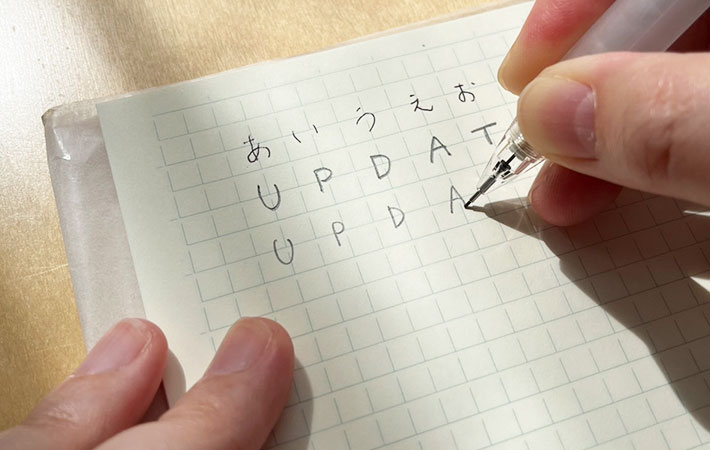 あいうえお
UPDAT
UPDA